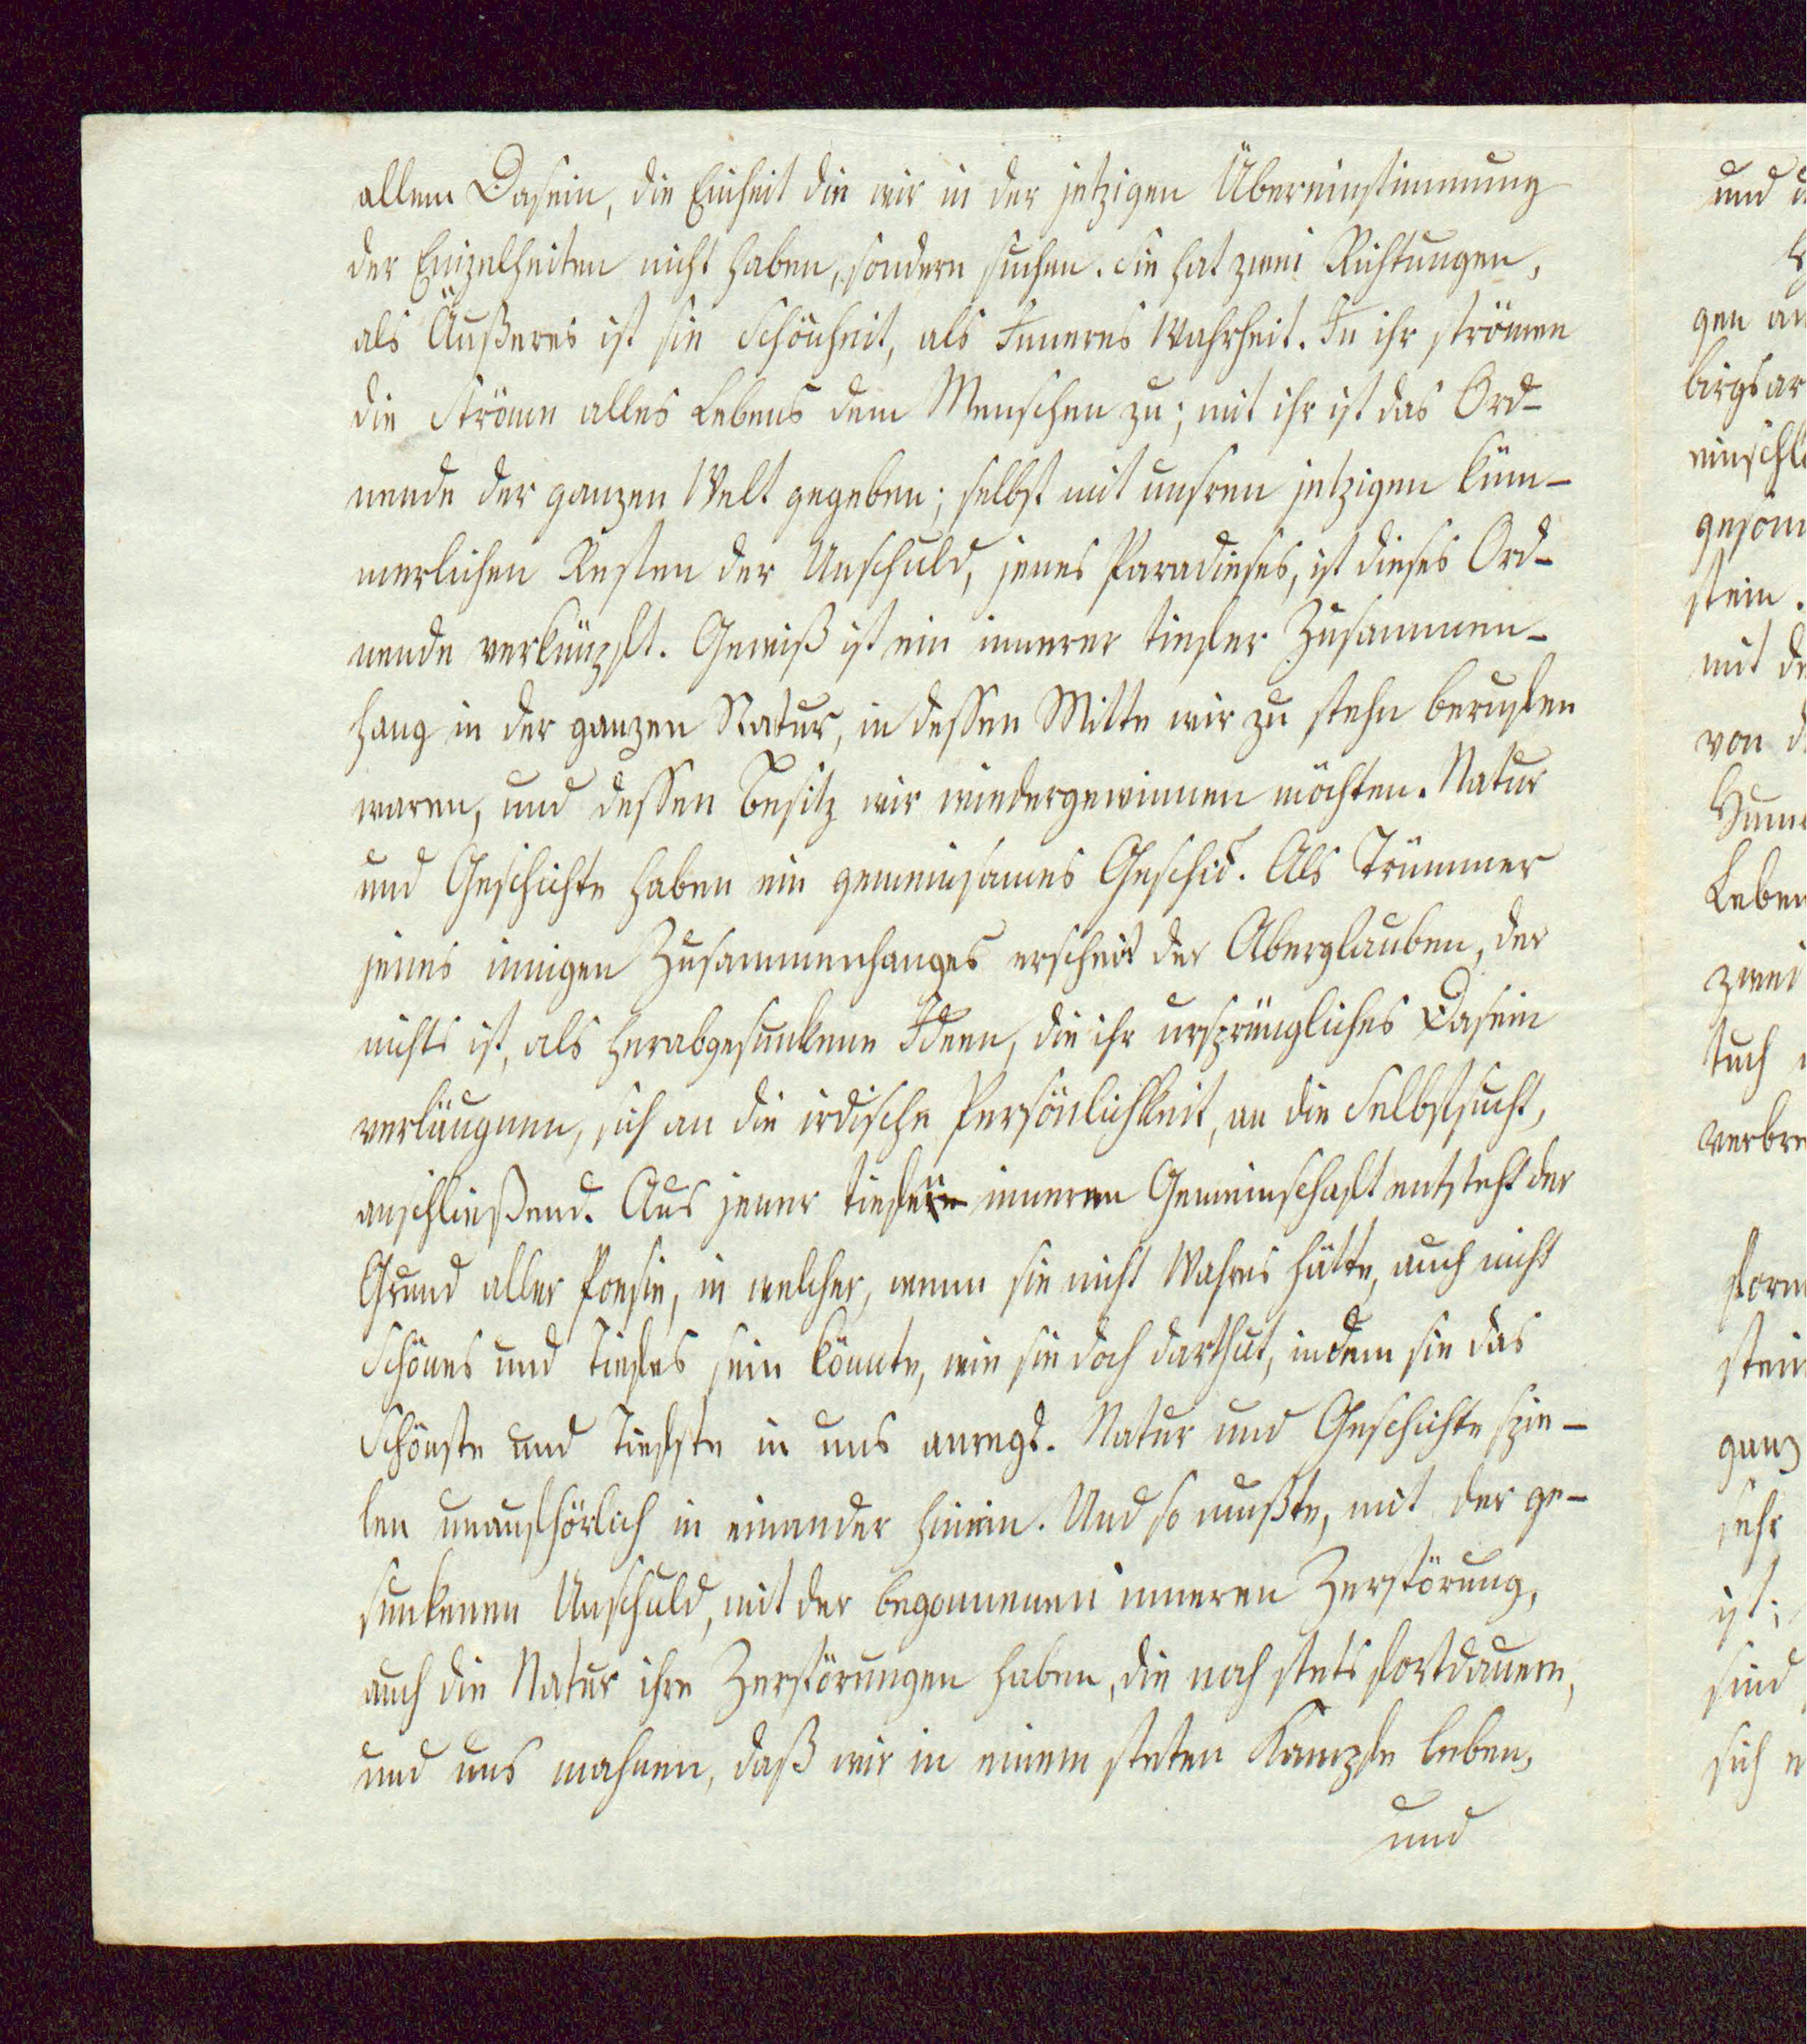 allem Dasein, die Einheit die wir in der jetzigen Übereinstimmung
der Einzelheiten nicht haben, sondern suchen. Sie hat zwei Richtungen,
als Äußeres ist sie Schönheit, als Inneres Wahrheit. In ihr strömen
die Ströme alles Lebens dem Menschen zu; mit ihr ist das Ord-
nende der ganzen Welt gegeben; selbst mit unsren jetzigen küm-
merlichen Resten der Unschuld, jenes Paradieses, ist dieses Ord-
nende verknüpft. Gewiß ist ein innerer tiefer Zusammen-
hang in der ganzen Natur, in dessen Mitte wir zu stehn berufen
waren, und dessen Besitz wir wiedergewinnen möchten. Natur
und Geschichte haben ein gemeinsames Geschick. Als Trümmer
jenes innigen Zusammenhanges erscheint der Aberglauben, der
nichts ist, als herabgesunkene Ideen, die ihr ursprüngliches Dasein
verläugnen, sich an die irdische Persönlichkeit, an die Selbstsucht,
anschließend. Aus jener tiefen inneren Gemeinschaft entsteht der
Grund aller Poesie, in welcher, wenn sie nicht Wahres hätte, auch nicht
Schönes und Tiefes sein könnte, wie sie doch darthut, indem sie das
Schönste und Tiefste in uns anregt. Natur und Geschichte spie-
len unaufhörlich in einander hinein. Und so mußte, mit der ge-
sunkenen Unschuld, mit der begonnenen inneren Zerstörung,
auch die Natur ihre Zerstörungen haben, die noch stets fortdauern,
und uns mahnen, daß wir in einem steten Kampfe leben,
und
und
gen an
birgsar
einschl
stein.
mit de
von d
Leben
zwei
tuch
verbre
form
stein
ganz
sehr
ist;
sind
sich